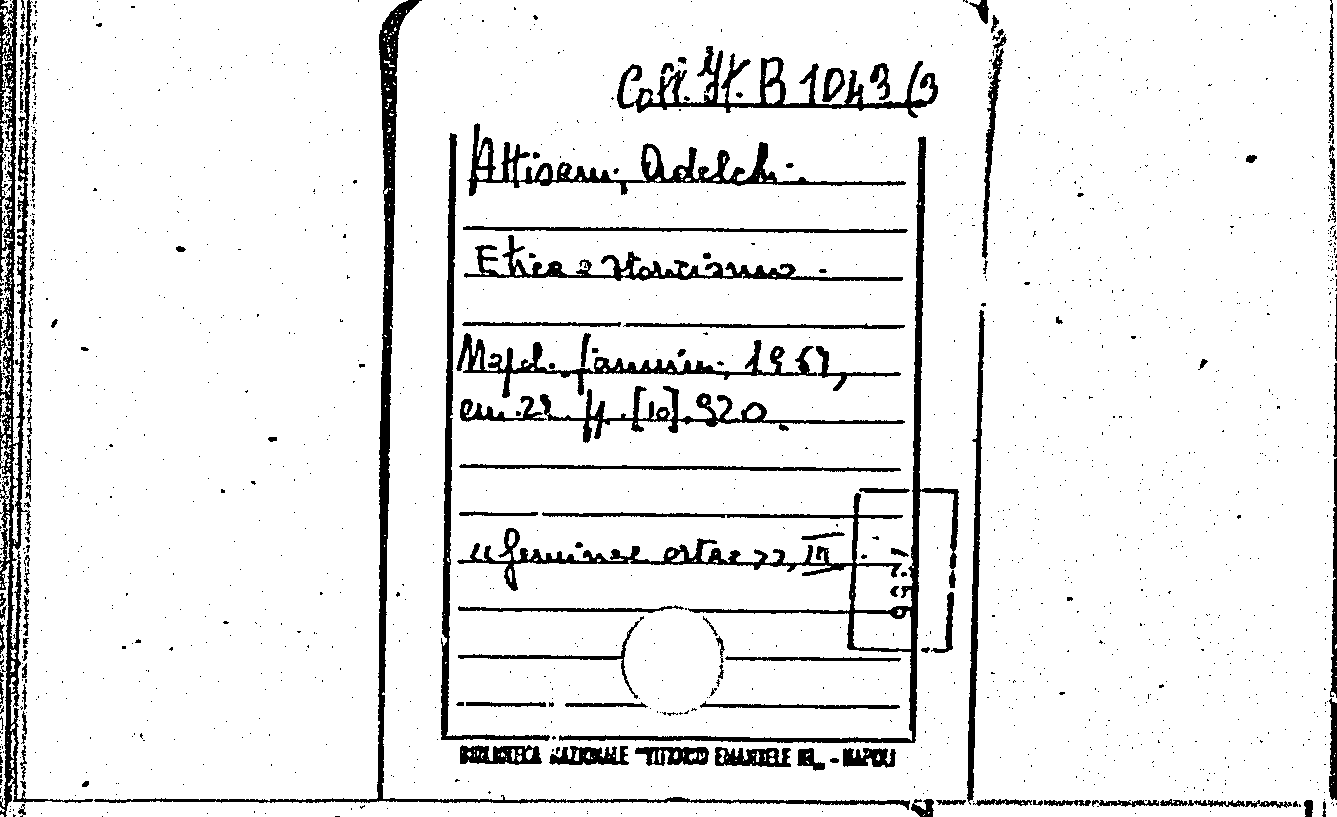 Coll. It. B 1043 (3
Attisani, Adelchi.
Etica e storicismo.
Napoli. Giannini, 1967,
cm. 23. pp. [10]. 320.
«Geminae ortae», III.
BIBLIOTECA NAZIONALE "VITTORIO EMANUELE III" - NAPOLI